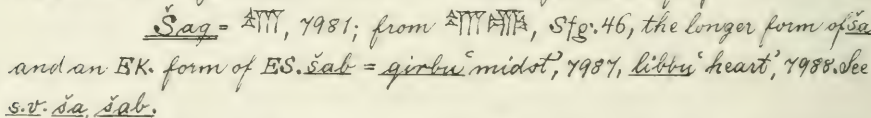 Šag = 𒊮, 7981; from 𒊮, Sfg. 46, the longer form of ša
and an EK. form of ES. šab = girbu ‘midst’, 7987, libbu ‘heart’, 7988. See
s.v. ša, šab.